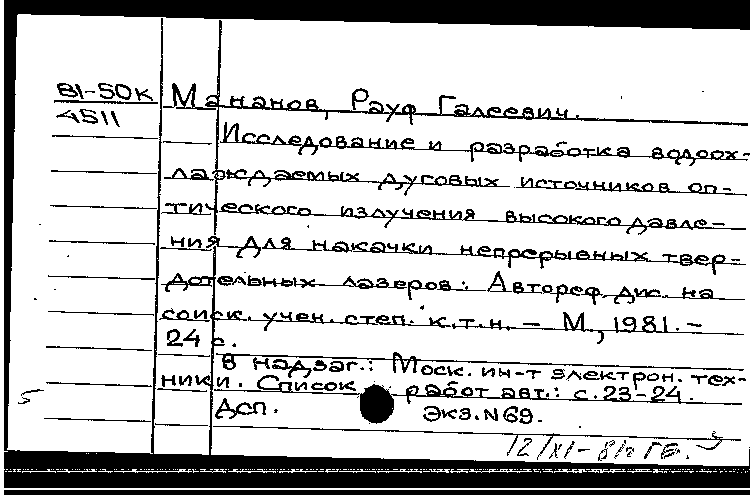 В1-50К Мананов, Рауф Галеевич.
4511
Исследование и разработка водоох-
лаждаемых дуговых источников оп-
тического излучения высокого давле-
ния для накачки непрерывных твер-
дотельных лазеров: Автореф. дис. на
соиск. учен. степ. к.т.н. – М., 1981. –
24 с.
В надзаг.: Моск. ин-т электрон. тех-
ники. Список работ авт.: с. 23-24.
Дсп. Экз. N69.
5
12/XI-81г